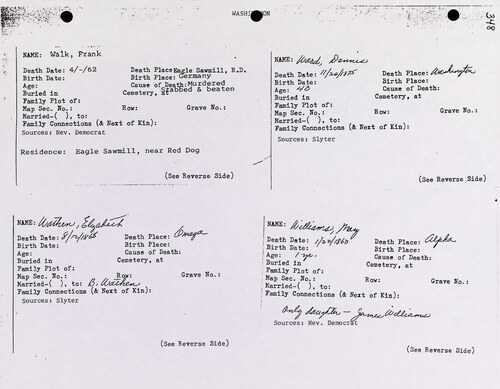 WASHINGTON
348
NAME: Walk, Frank
Death Date: 4/-/62 Death Place: Eagle Sawmill, R.D.
Birth Date: Birth Place: Germany
Age: Cause of Death: Murdered
Buried in Cemetery, at Stabbed & beaten
Family Plot of:
Map Sec. No.: Row: Grave No.:
Married-( ), to:
Family Connections (& Next of Kin):
Sources: Nev. Democrat
Residence: Eagle Sawmill, near Red Dog
(See Reverse Side)
NAME: Ward, Dennis
Death Date: 11/26/1855 Death Place: Washington
Birth Date: Birth Place:
Age: 40 Cause of Death:
Buried in Cemetery, at
Family Plot of:
Map Sec. No.: Row: Grave No.:
Married-( ), to:
Family Connections (& Next of Kin):
Sources: Slyter
(See Reverse Side)
NAME: Wathen, Elizabeth
Death Date: 8/12/1868 Death Place: Omega
Birth Date: Birth Place:
Age: Cause of Death:
Buried in Cemetery, at
Family Plot of:
Map Sec. No.: Row: Grave No.:
Married-( ), to: B. Wathen
Family Connections (& Next of Kin):
Sources: Slyter
(See Reverse Side)
NAME: Williams, May
Death Date: 1/22/1860 Death Place: Alpha
Birth Date: Birth Place:
Age: 1 yr. Cause of Death:
Buried in Cemetery, at
Family Plot of:
Map Sec. No.: Row: Grave No.:
Married-( ), to:
Family Connections (& Next of Kin):
Only daughter - James Williams
Sources: Nev. Democrat
(See Reverse Side)